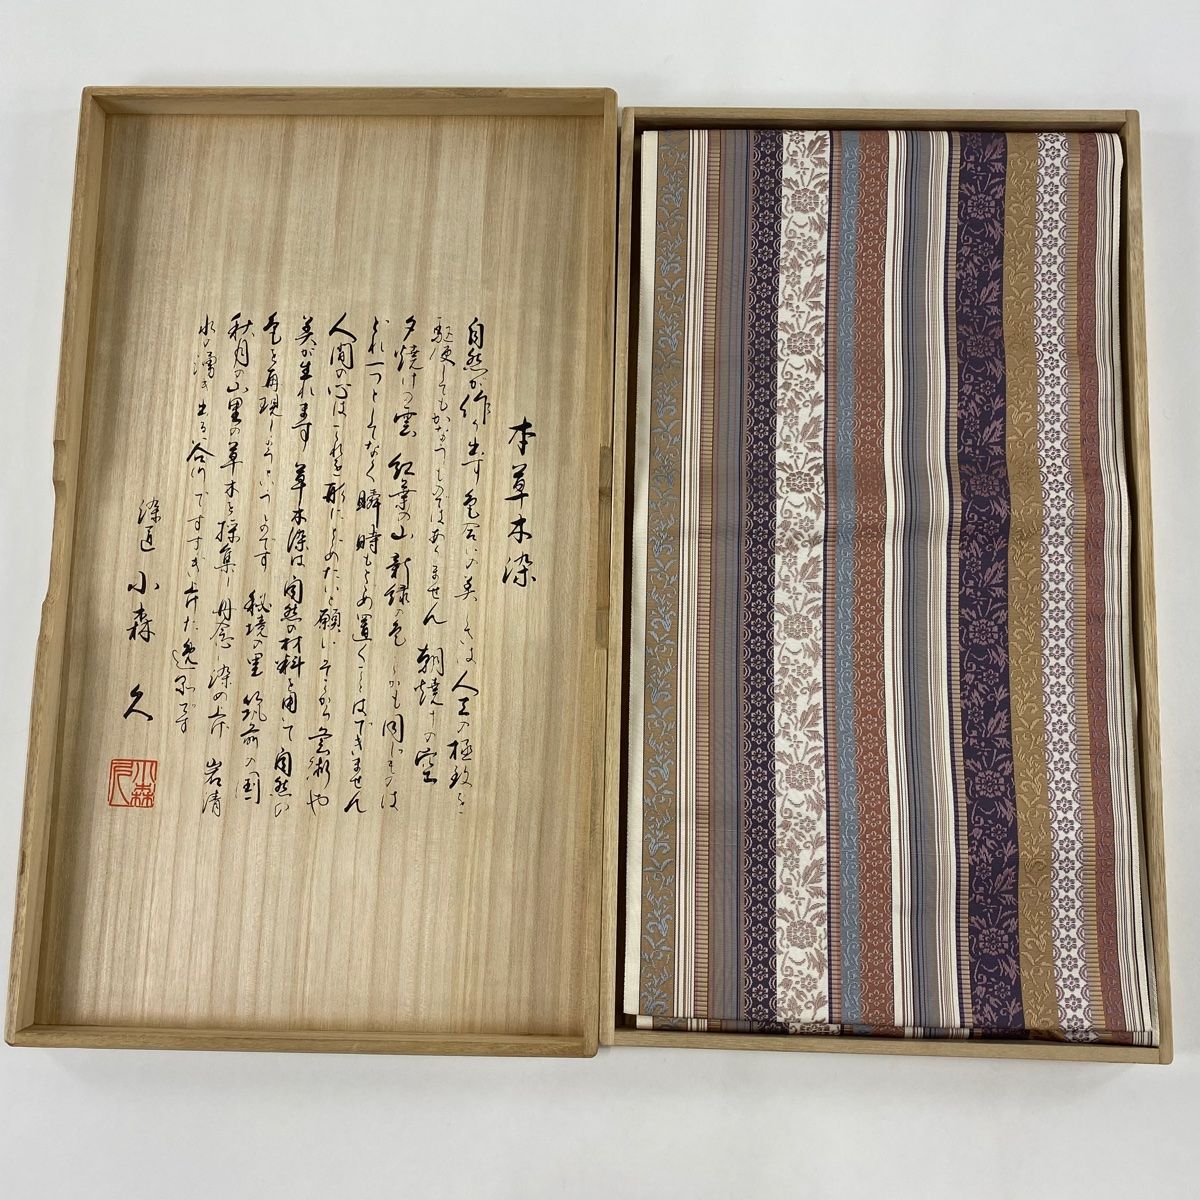 本草木染
自然が作り出す色合いの美しさは人工の極致を
駆使してもかなうものではありません 朝焼けの空
夕焼けの雲 紅葉の山 新緑の色 しかも同じものは
どれ一つとしてなく 瞬時もとめ置くことはできません
人間の心はこれを形にとどめたいと願い そこから芸術や
美が生れます 草木染は自然の材料を用いて自然の
色を再現しようというのです 秘境の里 筑前の国
秋月の山里の草木を採集し丹念に染め上げ 岩清
水の湧き出る谷川ですすぎ上げた逸品です
染匠 小森 久
小森久